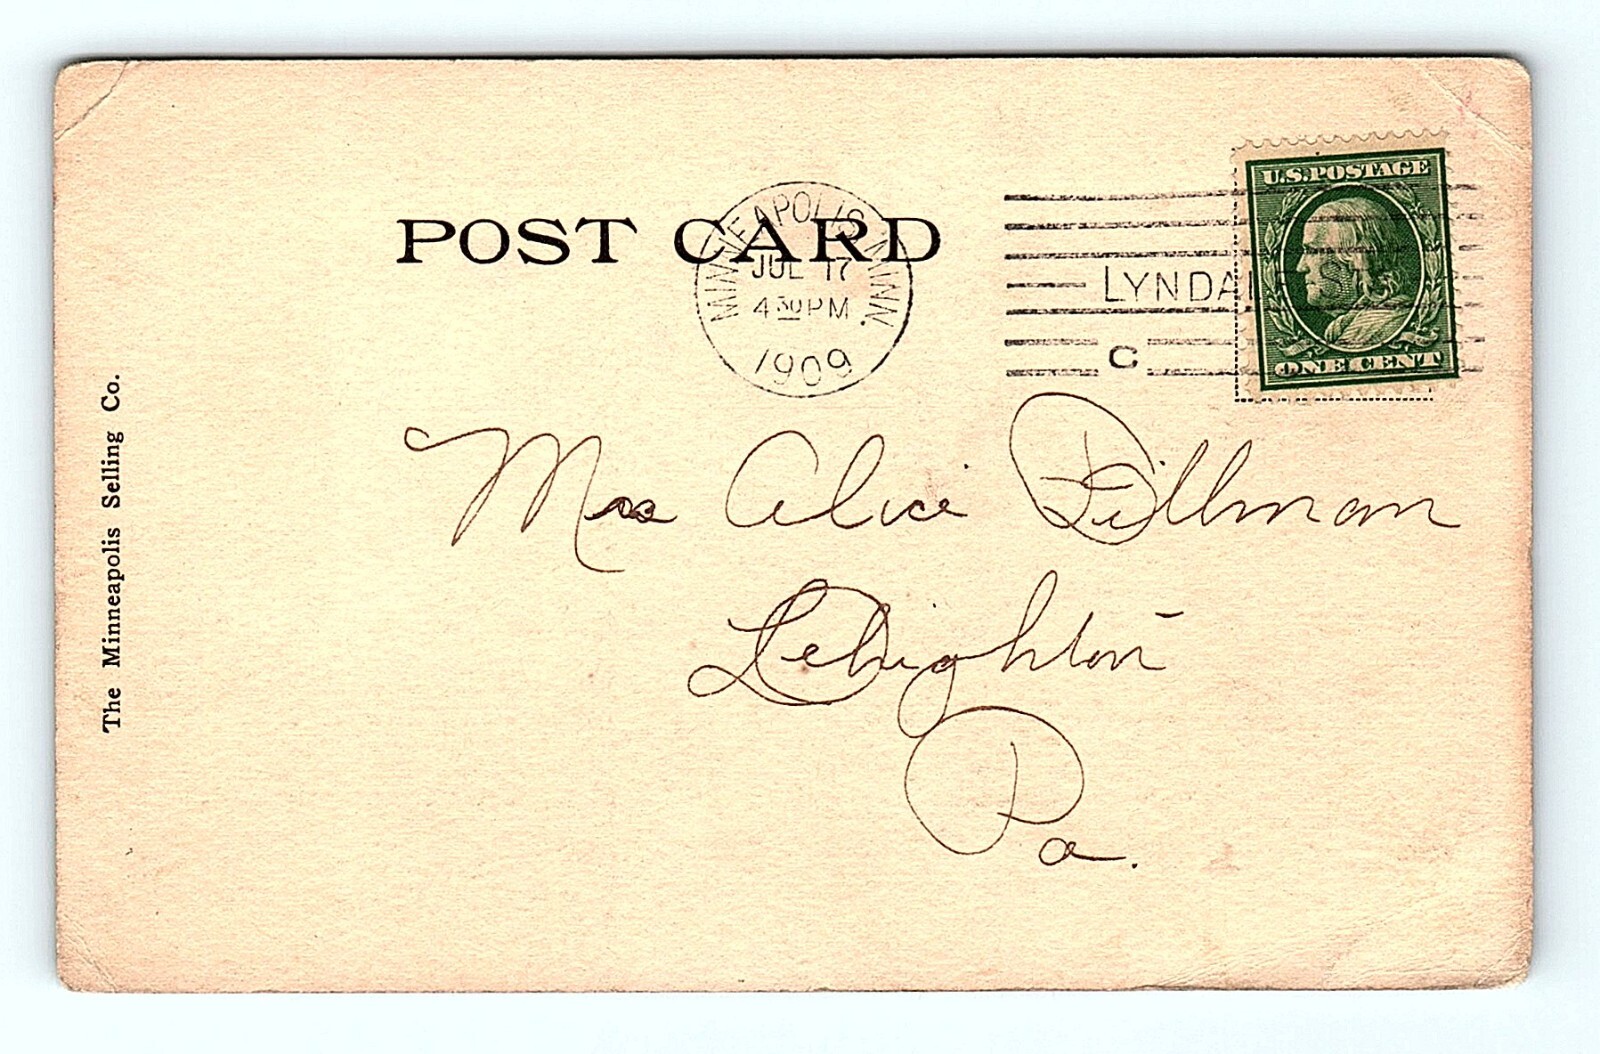 POST CARD
MINNEAPOLIS, MINN.
JUL 17
4 30 PM
1909
LYNDALE STA
C
U.S. POSTAGE
ONE CENT
Mrs Alice Dillman
Lehighton
Pa.
The Minneapolis Selling Co.